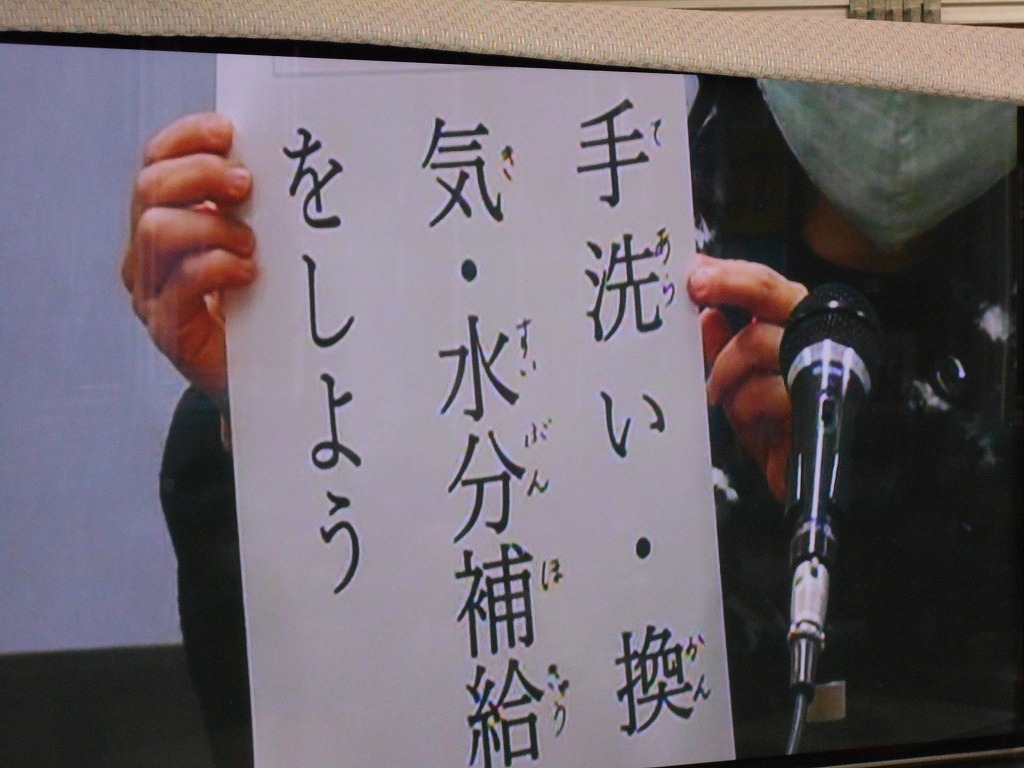 手洗い・換
気・水分補給
をしよう
て
あら
かん
き
すい
ぶん
ほ
きゅう